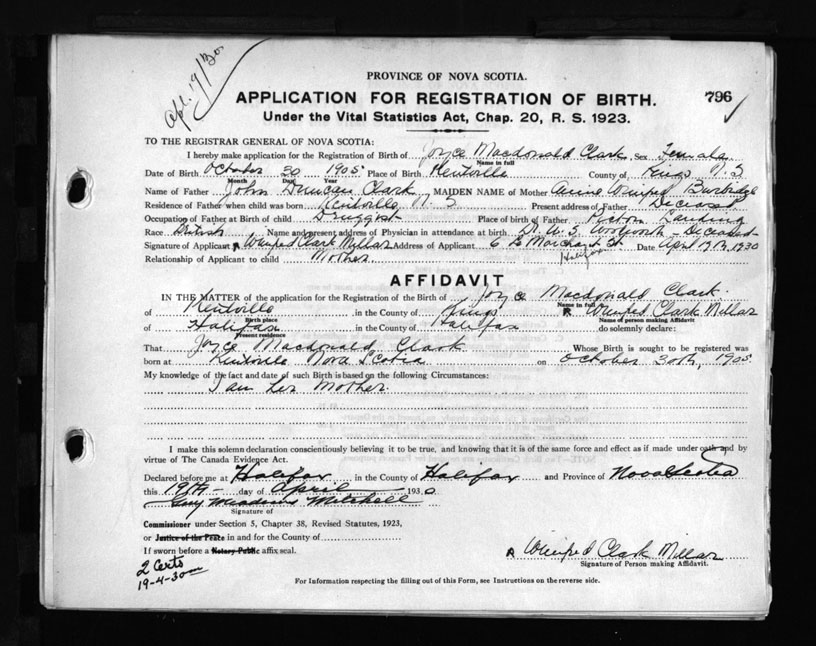 Apl. 19/30
PROVINCE OF NOVA SCOTIA.
796
APPLICATION FOR REGISTRATION OF BIRTH.
Under the Vital Statistics Act, Chap. 20, R. S. 1923.
TO THE REGISTRAR GENERAL OF NOVA SCOTIA:
I hereby make application for the Registration of Birth of Joyce Macdonald Clark Sex Female
Name in full
Date of Birth October 30 1905 Place of Birth Kentville County of Kings N.S
Month Day Year
Name of Father John Duncan Clark MAIDEN NAME of Mother Annie Winifred Burbidge
Residence of Father when child was born Kentville N.S Present address of Father Deceased
Occupation of Father at Birth of child Druggist Place of birth of Father Pictou Landing
Race British Name and present address of Physician in attendance at birth Dr. W. S. Woolworth - Deceased
Signature of Applicant A Winifred Clark Millar Address of Applicant 6 Le Marchant St Date April 19th, 1930
Halifax
Relationship of Applicant to child Mother
AFFIDAVIT
IN THE MATTER of the application for the Registration of the Birth of Joyce Macdonald Clark
Name in full
of Kentville in the County of Kings A Winifred Clark Millar
Birth place Name of person making Affidavit
of Halifax in the County of Halifax do solemnly declare:
Present residence
That Joyce Macdonald Clark Whose Birth is sought to be registered was
born at Kentville Nova Scotia on October 30th, 1905
My knowledge of the fact and date of such Birth is based on the following Circumstances:
I am her Mother.
I make this solemn declaration conscientiously believing it to be true, and knowing that it is of the same force and effect as if made under oath and by
virtue of The Canada Evidence Act.
Declared before me at Halifax in the County of Halifax and Province of Nova Scotia
this 19th day of April 1930
Guy Meadows Mitchell
Signature of
Commissioner under Section 5, Chapter 38, Revised Statutes, 1923,
or Justice of the Peace in and for the County of
If sworn before a Notary Public affix seal.
A Winifred Clark Millar
Signature of Person making Affidavit.
2 Certs
19-4-30
For Information respecting the filling out of this Form, see Instructions on the reverse side.